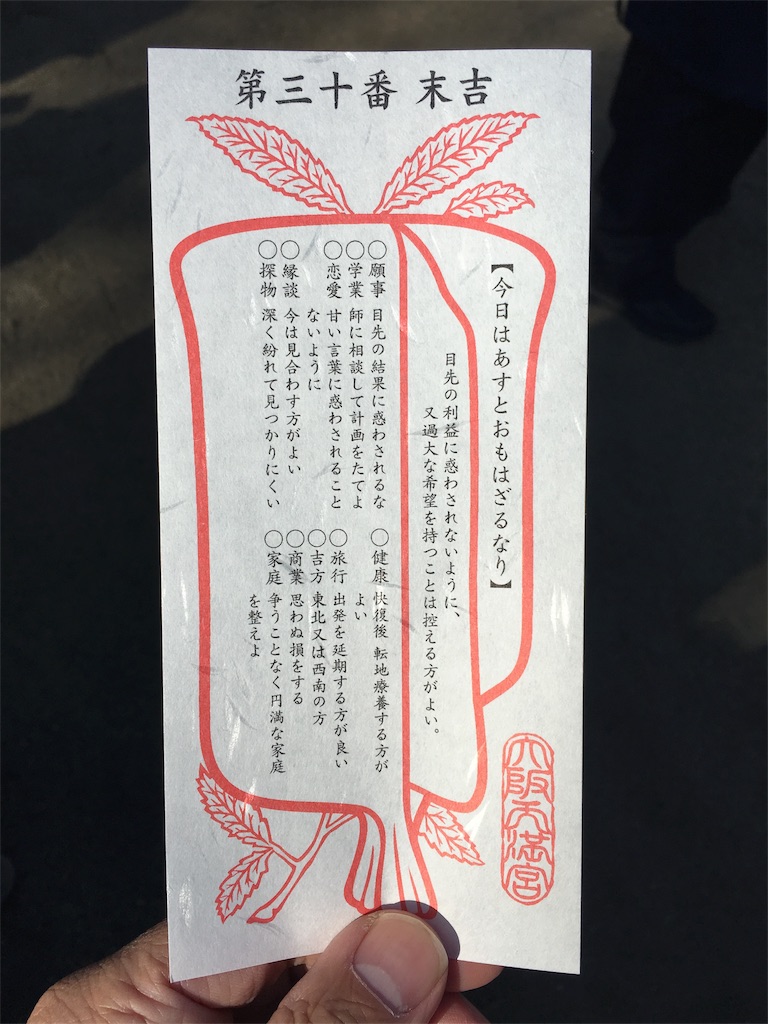 第三十番 末吉
【今日はあすとおもはざるなり】
目先の利益に惑わされないように、
又過大な希望を持つことは控える方がよい。
〇願事 目先の結果に惑わされるな
〇学業 師に相談して計画をたてよ
〇恋愛 甘い言葉に惑わされること
ないように
〇縁談 今は見合わす方がよい
〇探物 深く紛れて見つかりにくい
〇健康 快復後 転地療養する方が
よい
〇旅行 出発を延期する方が良い
〇吉方 東北又は西南の方
〇商業 思わぬ損をする
〇家庭 争うことなく円満な家庭
を整えよ
大阪天満宮